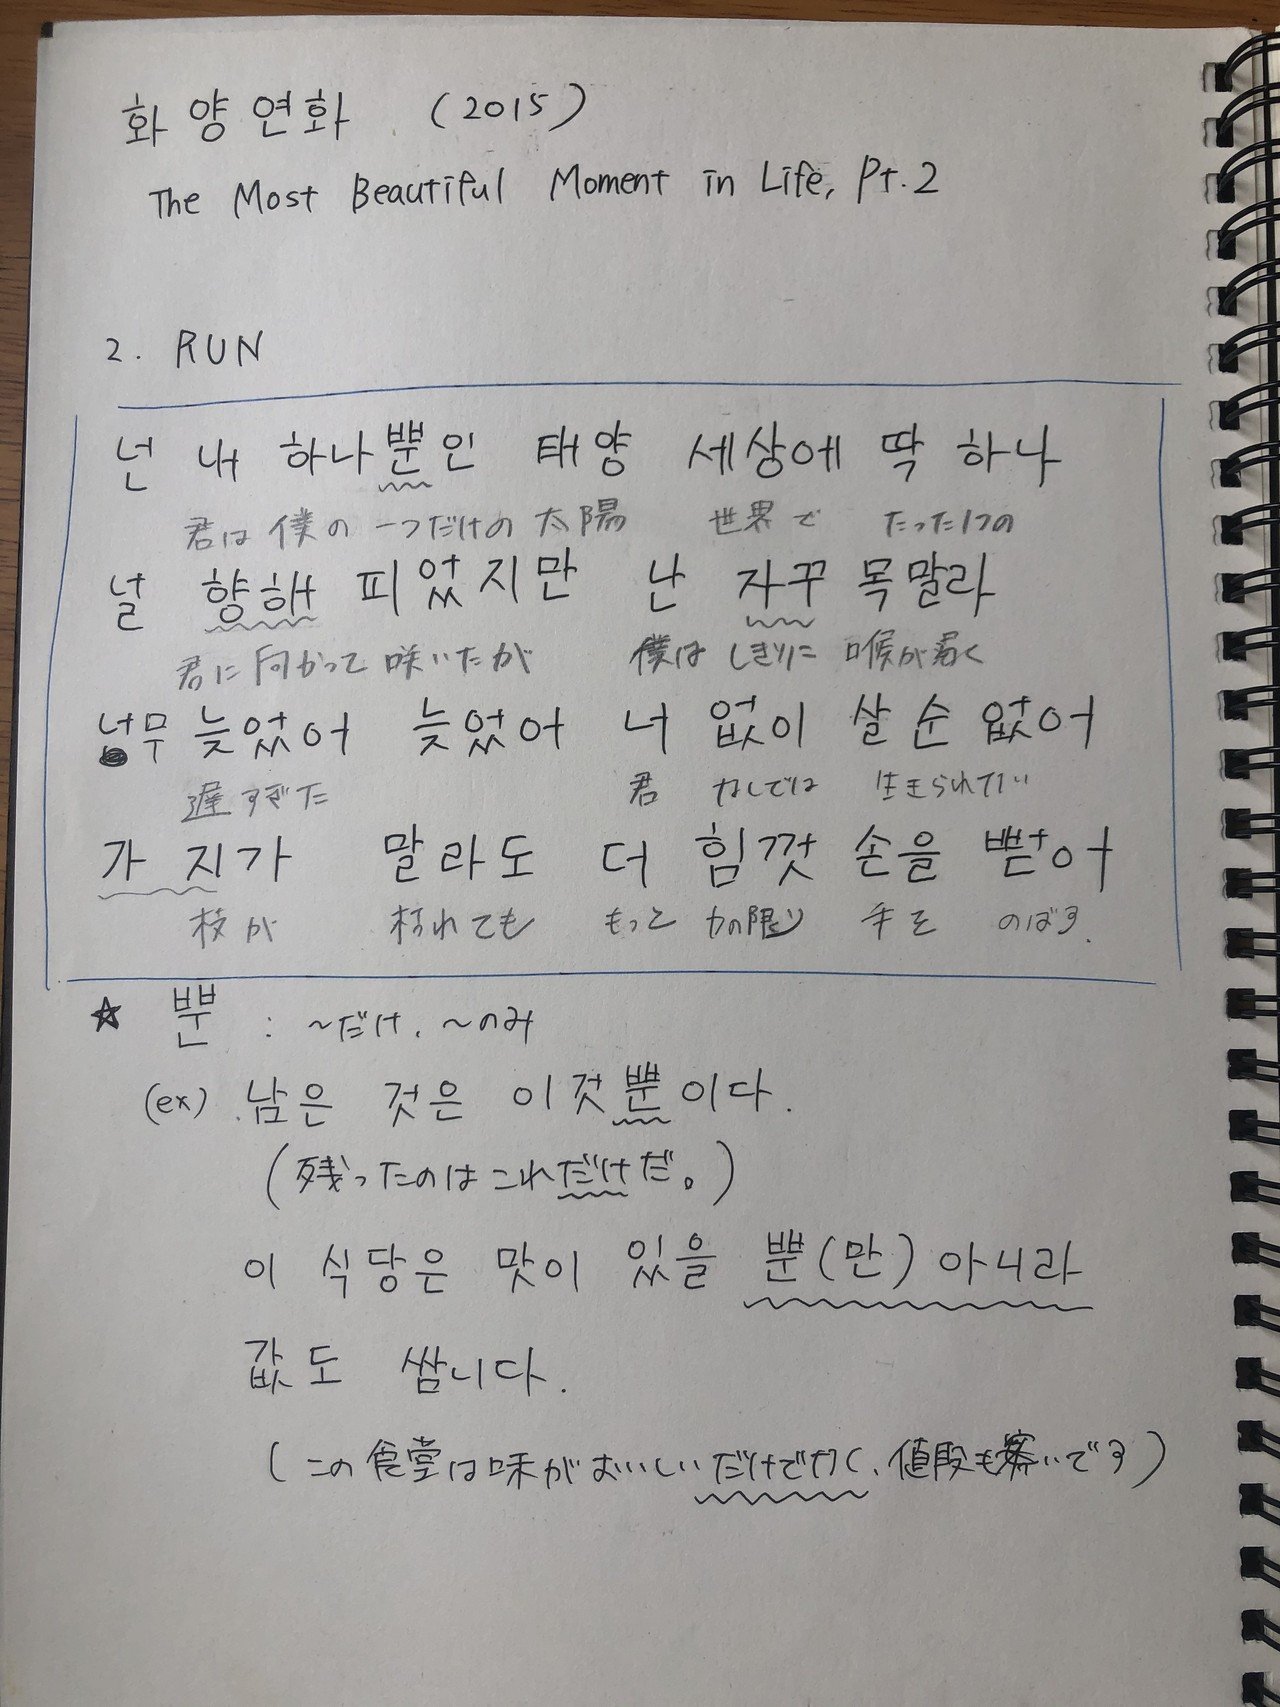 화양연화 (2015)
The Most Beautiful Moment in Life, Pt.2
2. RUN
넌 내 하나뿐인 태양 세상에 딱 하나
君は 僕の 一つだけの 太陽 世界で たった1つの
널 향해 피었지만 난 자꾸 목말라
君に 向かって 咲いたが 僕は しきりに 喉が
너무 늦었어 늦었어 너 없이 살 순 없어
遅すぎた 君 なしでは 生きられない
가지가 말라도 더 힘껏 손을 뻗어
枝が 枯れても もっと 力の限り 手を のばす.
☆ 뿐 : ~だけ、~のみ
(ex) 남은 것은 이것뿐이다.
(残ったのはこれだけだ。)
이 식당은 맛이 있을 뿐(만) 아니라
값도 쌉니다.
(この食堂は味がおいしいだけでなく、値段も いです)